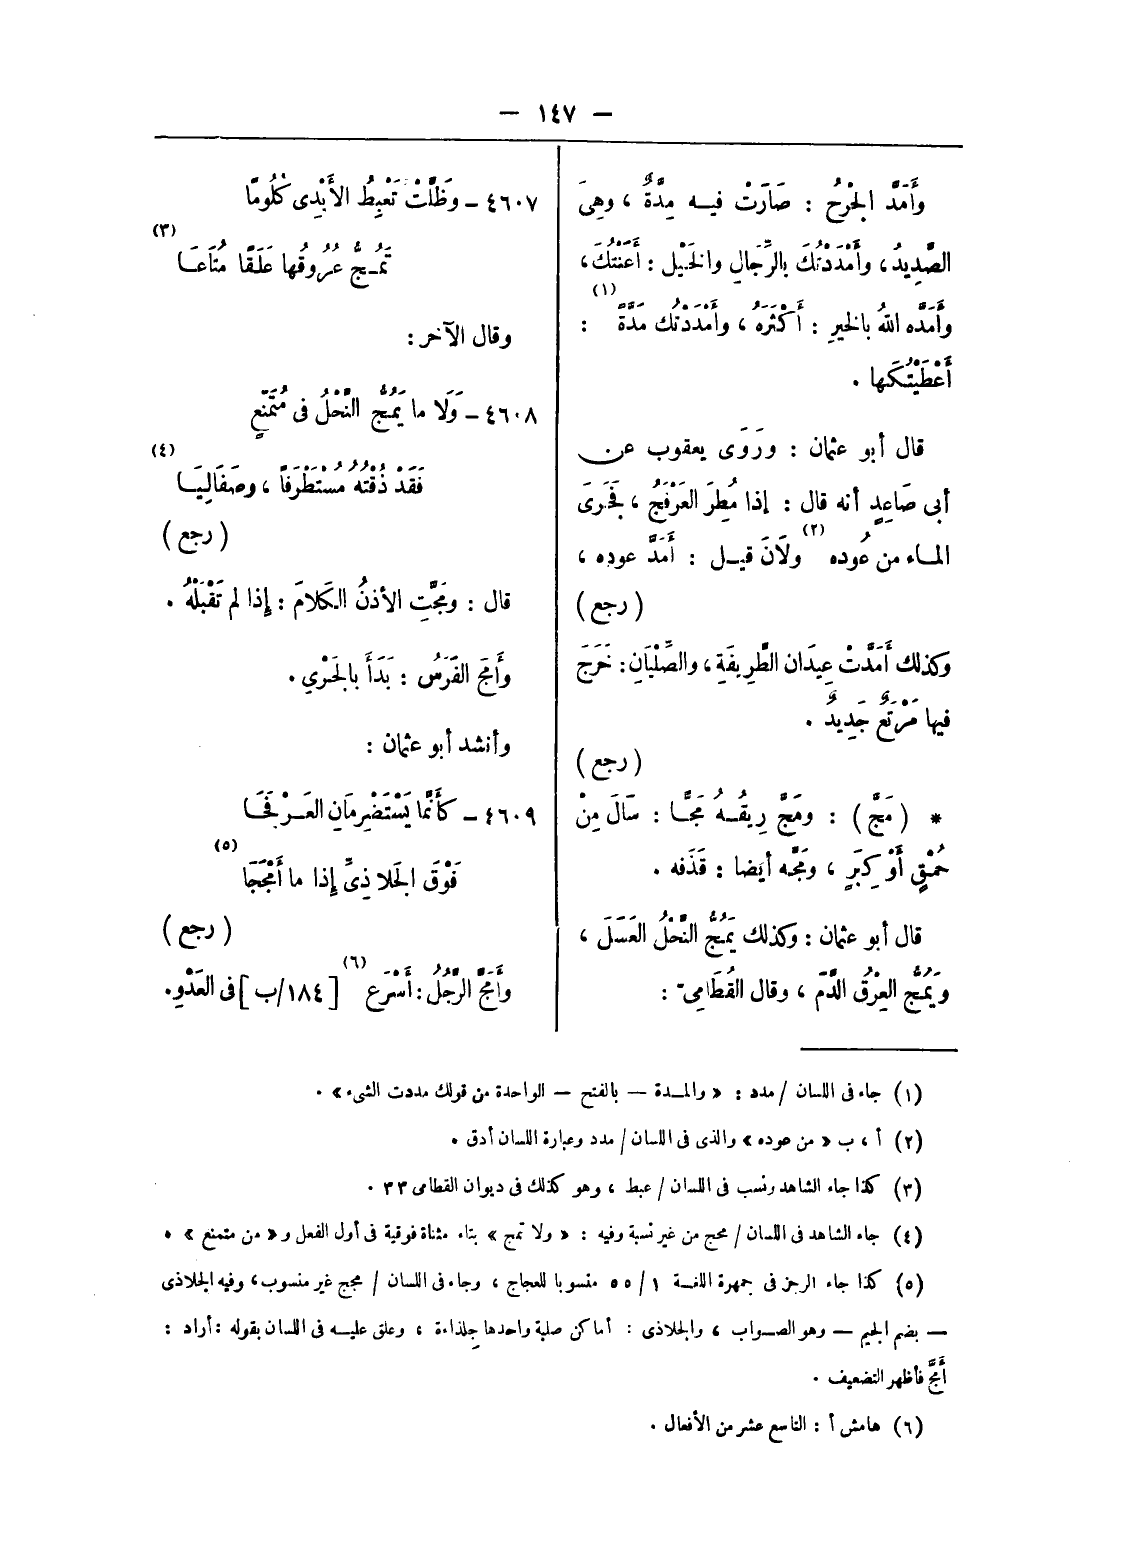 — ١٤٧ —
وأَمَدَّ الجُرْحُ : صَارَتْ فيه مِدَّةٌ ، وهِىَ
الصَّدِيدُ ، وأَمْدَدْتُكَ بالرِّجَالِ والخَيْل : أَعَنْتُكَ ،
وأَمَدَّه اللهُ بالخيرِ : أَكْثَرَهُ ، وأَمْدَدْتُك مَدَّةً (١) :
أَعْطَيْتُكَها .
قال أبو عثمان : ورَوَى يعقوب عن
أبى صَاعِدٍ أنه قال : إذا مُطِرَ العَرْفَجُ ، فَجَرَى
الماء من عُوده (٢) ولَانَ قيل : أَمَدَّ عوده ،
( رجع )
وكذلك أَمَدَّتْ عِيدَان الطَّرِيفَةِ ، والصِّلْيَانِ : خَرَجَ
فيها مَرْتَعٌ جَدِيدٌ .
( رجع )
* ( مَجَّ ) : ومَجَّ رِيقُه مَجًّا : سَالَ مِنْ
حُمْقٍ أَوْ كِبَرٍ ، ومَجَّه أيضا : قَذَفه .
قال أبو عثمان : وكذلك يَمُجُّ النَّحْلُ العَسَلَ ،
وَيَمُجُّ العِرْقُ الدَّمَ ، وقال القُطَامِىّ :
٤٦٠٧ – وظَلَّتْ تَعْبِطُ الأَيْدِى كُلُومًا
تَمُجُّ عُرُوقُها عَلَقًا مُتَاعَا (٣)
وقال الآخر :
٤٦٠٨ – وَلَا ما يَمُجُّ النَّحْلُ فى مُتَمَنَّعٍ
فَقَدْ ذُقْتُه مُسْتَطْرَفًا ، وصَفَالِيَا (٤)
( رجع )
قال : ومَجَّتِ الأُذنُ الكَلَامَ : إذا لم تَقْبَلْهُ .
وأَمَجَّ الفَرَسُ : بَدَأَ بالجَرْيِ .
وأنشد أبو عثمان :
٤٦٠٩ – كأَنَّما يَسْتَضْرِمَانِ العَرْفَجَا
فَوْقَ الجَلاذِىِّ إذا ما أَمْجَجَا (٥)
( رجع )
وأَمَجَّ الرَّجُلُ : أَسْرَع (٦) [ ١٨٤/ب ] فى العَدْوِ .
(١) جاء فى اللسان / مدد : « والمدة – بالفتح – الواحدة من قولك مددت الشىء » .
(٢) أ ، ب « من عوده » والذى فى اللسان / مدد وعبارة اللسان أدق .
(٣) كذا جاء الشاهد ونسب فى اللسان / عبط ، وهو كذلك فى ديوان القطامى ٣٣ .
(٤) جاء الشاهد فى اللسان / مجج من غير نسبة وفيه : « ولا تمج » بتاء مثناة فوقية فى أول الفعل و« من متمنع » .
(٥) كذا جاء الرجز فى جمهرة اللغة ١ / ٥٥ منسوبا للعجاج ، وجاء فى اللسان / مجج غير منسوب ، وفيه الجلاذى
– بضم الجيم – وهو الصواب ، والجلاذى : أماكن صلبة واحدها جِلذاءة ، وعلق عليه فى اللسان بقوله : أراد :
أَمَجَّ فأظهر التضعيف .
(٦) هامش أ : التاسع عشر من الأفعال .